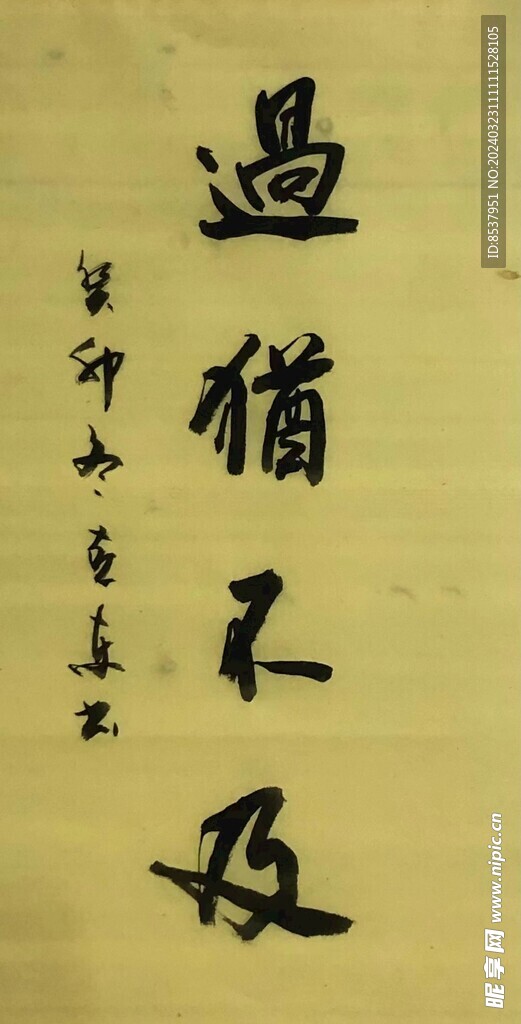 過猶不及
癸卯冬克東书
ID:8537951 NO:20240323111111528105
昵享网 www.nipic.cn